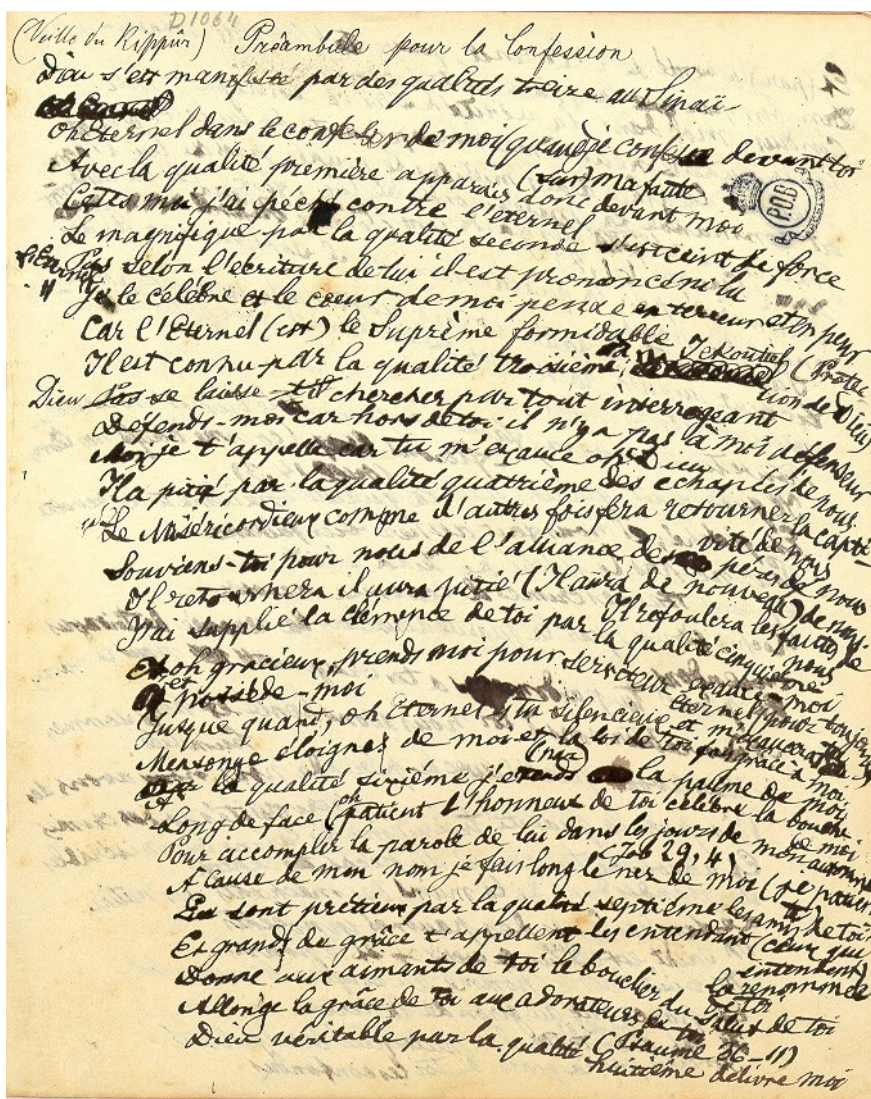 D1064
(Veille du Kippûr) Préambule pour la Confession
Dieu s'est manifesté par des qualités treize au Sinaï
oh Eternel dans le de moi (quand je confesse devant toi
(sur) ma faute
Avec la qualité première apparais donc devant moi
Certes moi j'ai péché contre l'eternel
P.D.B
Le magnifique par la qualité seconde s'est ceint de force
L'Eternel selon l'écriture de lui il est prononcé ni lu
Je le célèbre et le cœur de moi pense en terreur et en peur
Car l'Eternel (est) le Suprème formidable
Il est connu par la qualité troisième Jekoutiel (Protection de Dieu)
Dieu se laisse chercher partout interrogeant
Défends-moi car hors de toi il n'y a pas à moi défenseur
Moi je t'appelle car tu m'exauce oh Dieu
Il a pitié par la qualité quatrième des echappés de nous
Le Miséricordieux comme d'autres fois fera retourner la captivité de nous
Souviens-toi pour nous de l'alliance des pères de nous
Il retournera il aura pitié (Il aura de nouveau) de nous.
Il refoulera les fautes de nous
J'ai supplié la clémence de toi par la qualité cinquième
oh gracieux, prends moi pour serviteur exauce-moi
et possède-moi
Jusque quand, oh Eternel es tu silencieux et
Mensonge éloignes de moi et la loi de toi fais grâce à moi
Par la qualité sixième j'étends la paume de moi
Long de face (oh patient) L'honneur de toi célèbre la bouche de moi
Pour accomplir la parole de lui dans les jours de mon automne
(Job 29,4)
A cause de mon nom je fais long le nez de moi (je patiente)
sont précieux par la qualité septième les amis de toi
Et grand de grâce t'appellent les entendant (ceux qui entendent)
la renommée de toi
Donne aux aimants de toi le bouclier du salut de toi
Allonge la grâce de toi aux adorateurs de toi
(Psaume 36-11)
Dieu véritable par la qualité huitième délivre moi